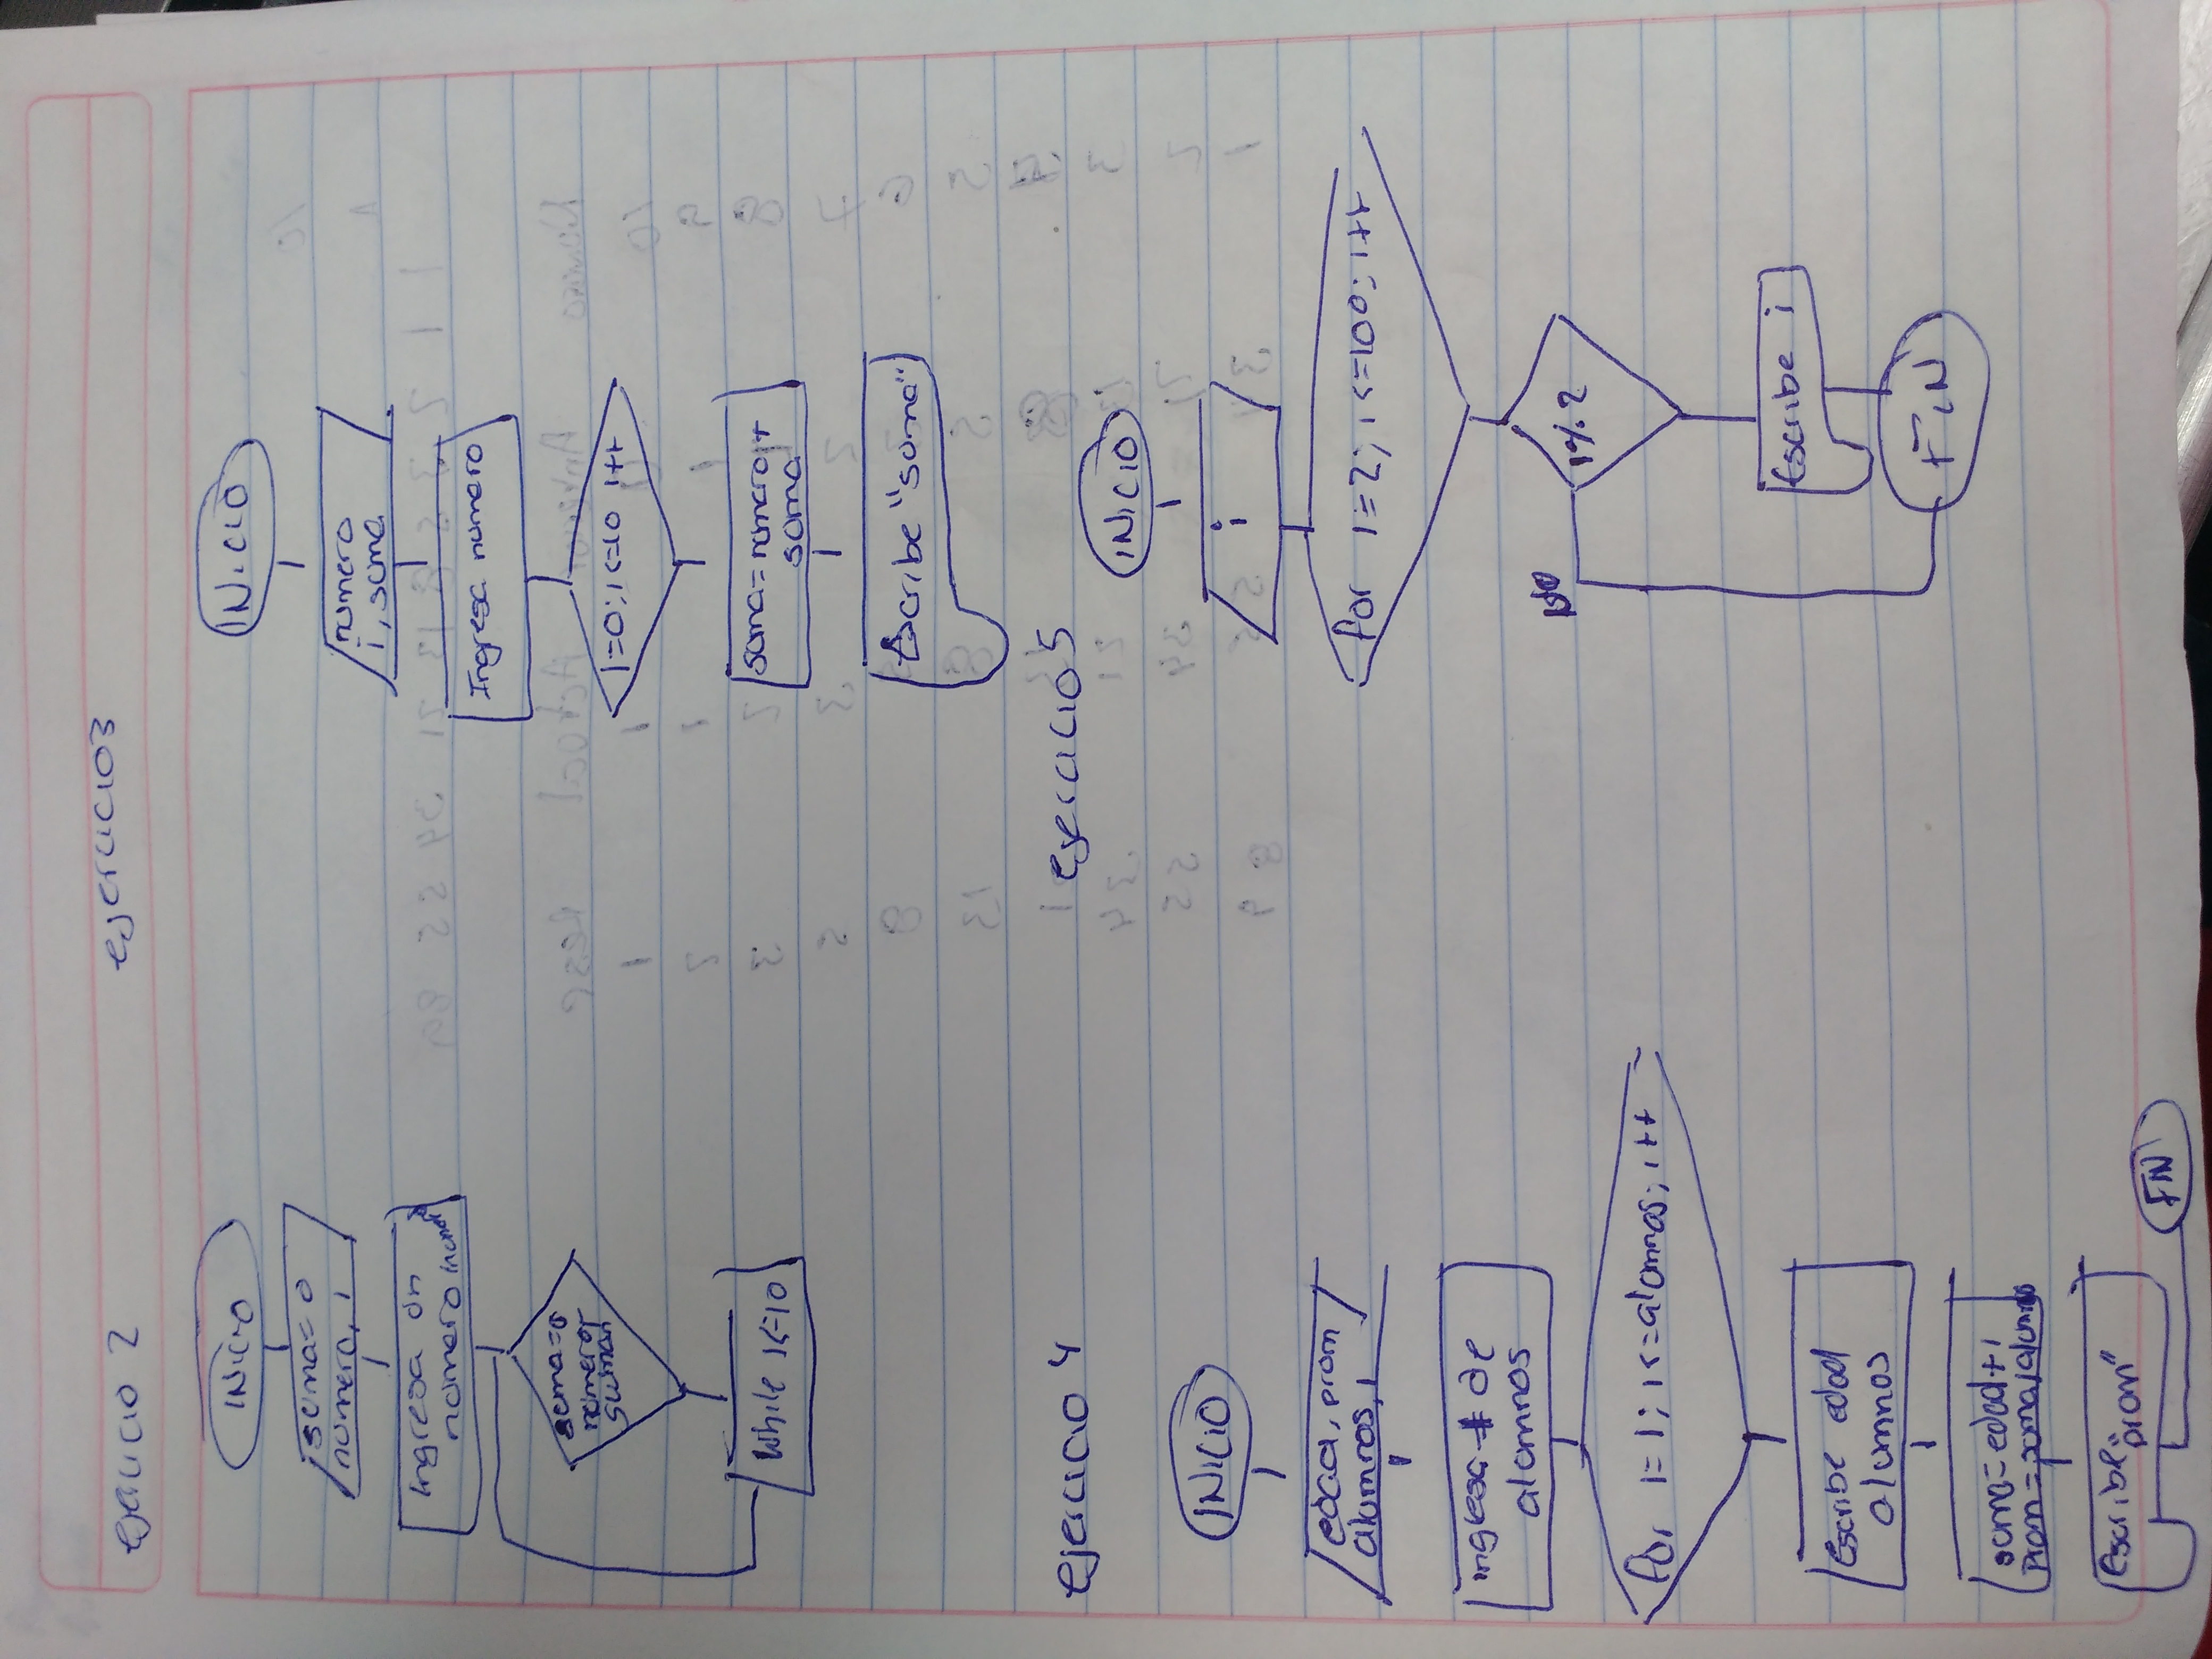 ejercicio 2
INicio
suma=0
numero, i
Ingresa un
numero
suma=0
numero+
suman
While i<=10
ejercicio3
INiCiO
numero
i, suma
Ingresa numero
i=0; i<=10 i++
suma=numero+
suma
Escribe "suma"
ejercicio 4
INiCiO
edad, prom
alumnos, i
ingresa # de
alumnos
for i=1; i<=alumnos; i++
Escribe edad
alumnos
suma=edad+i
prom=suma/alumnos
Escribe
"prom"
FiN
ejercicio5
INiCiO
i
for i=2; i<=100; i++
i%2
NO
Escribe i
FiN